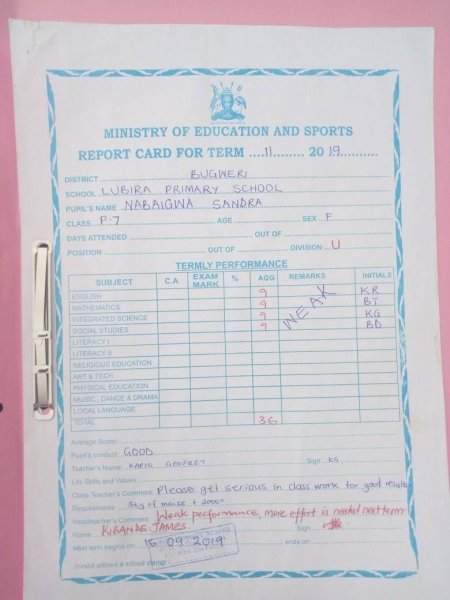 MINISTRY OF EDUCATION AND SPORTS
REPORT CARD FOR TERM ....11........ 2019..........
DISTRICT BUGWERI
SCHOOL LUBIRA PRIMARY SCHOOL
PUPIL'S NAME NABAIGWA SANDRA
CLASS P.7 AGE SEX F
DAYS ATTENDED OUT OF
POSITION OUT OF DIVISION U
TERMLY PERFORMANCE
SUBJECT C.A EXAM MARK % AGG REMARKS INITIALS
ENGLISH 9 KR
MATHEMATICS 9 BT
INTEGRATED SCIENCE 9 KG
SOCIAL STUDIES 9 BD
WEAK
LITERACY I
LITERACY II
RELIGIOUS EDUCATION
ART & TECH
PHYSICAL EDUCATION
MUSIC, DANCE & DRAMA
LOCAL LANGUAGE
TOTAL 36
Average Score
Pupil's conduct: GOOD
Teacher's Name: KAPIO GEOFREY Sign KG
Life Skills and Values
Class Teacher's Comment: Please get serious in class work for good results
Requirements: 5kg of maize + 2000=
Headteacher's Comment: Weak performance, more effort is needed next term.
Name: KIBANDE JAMES Sign
Next term begins on 16.09.2019 ends on
Invalid without a school stamp